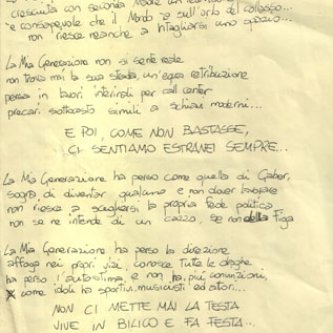 cresciuta con seconda Madre un
e consapevole che il Mondo è sull'orlo del collasso...
non riesce neanche a intagliarsi uno spazio...
La Mia Generazione non si sente erede
non trova mai la sua strada, un'equa retribuzione
persa in lavori interinali per call center
precari sottocosto simili a schiavi moderni...
E POI, COME NON BASTASSE,
CI SENTIAMO ESTRANEI SEMPRE...
La Mia Generazione ha perso come quella di Gaber,
sogna di diventar qualcuno e non dover
non riesce a scegliersi la propria fede politica
non se ne intende di un cazzo, se non della Figa
La Mia Generazione ha perso la direzione
affoga nei propri vizi, conosce tutte le droghe
ha perso l'autostima e non ha più convinzioni,
come idoli ha sportivi, musicisti ed attori...
NON CI METTE MAI LA TESTA
VIVE IN BILICO E FA FESTA...